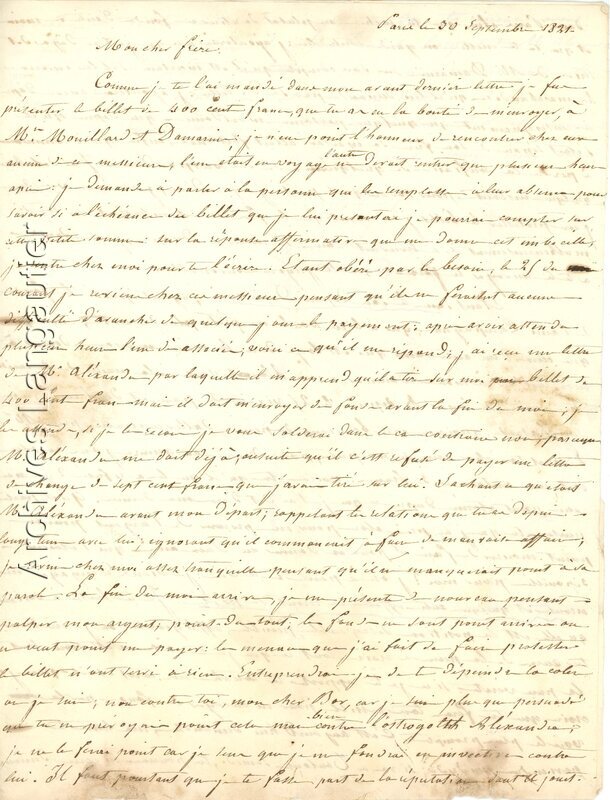 Paris le 30 Septembre 1821.
Mon cher frère.
Comme je te l'ai mandé dans mon avant dernière lettre je fus
présenter le billet de 400 cent francs, que tu as eu la bonté de m'envoyer, à
Mrs Mouillard et Damarin: je n'eus point l'honneur de rencontrer chez eux
aucun de ces messieurs, l'un était en voyage, l'autre ne devait rentrer que plusieurs heures
après: je demandé à parler à la personne qui les remplace à leur absence pour
savoir si à l'échéance du billet que je lui présentai je pourrai compter sur
cette petite somme: sur la réponse affirmative que me donne cet imbécille,
je rentre chez moi pour te l'écrire. Etant obéré par le besoin, le 25 du
courant je reviens chez ces messieurs pensant qu'ils ne feroient aucune
difficulté d'avancer de quelques jours le payement; après avoir attendu
plusieurs heures l'un des associés, voici ce qu'il me répond; j'ai reçu une lettre
de Mr Aléxandre par laquelle il m'apprend qu'il a tiré sur moi un billet de
400 cent francs mais il doit m'envoyer des fonds avant la fin du mois; je
les attends, si je les reçois je vous solderai dans le cas contraire non; parceque
Mr Aléxandre me doit déjà; ensuite qu'il s'est refusé de payer une lettre
de change de sept cent francs que j'avais tiré sur lui. Sachant ce qu'étoit
Mr Aléxandre avant mon départ; rappelant les relations que tu as depuis
longtems avec lui; ignorant qu'il commencoit à faire de mauvaises affaires;
je revins chez moi assez tranquille pensant qu'il ne manquerait point à sa
parole. La fin du mois arrive, je me présente de nouveau pensant
palper mon argent; point du tout, les fonds ne sont point arrivés on
ne veut point me payer: les menaces que j'ai fait de faire protester
le billet n'ont servi à rien. Entreprendrai-je de te dépeindre la colère
où je suis; non contre toi, mon cher Bor, car je suis plus que persuadé
que tu ne prévoyais point cela mais bien contre l'ostrogolth Aléxandre;
je ne le ferai point car je sens que je me fondrai en invectives contre
lui. Il faut pourtant que je te fasse part de la réputation dont il jouit
Archives Langautier